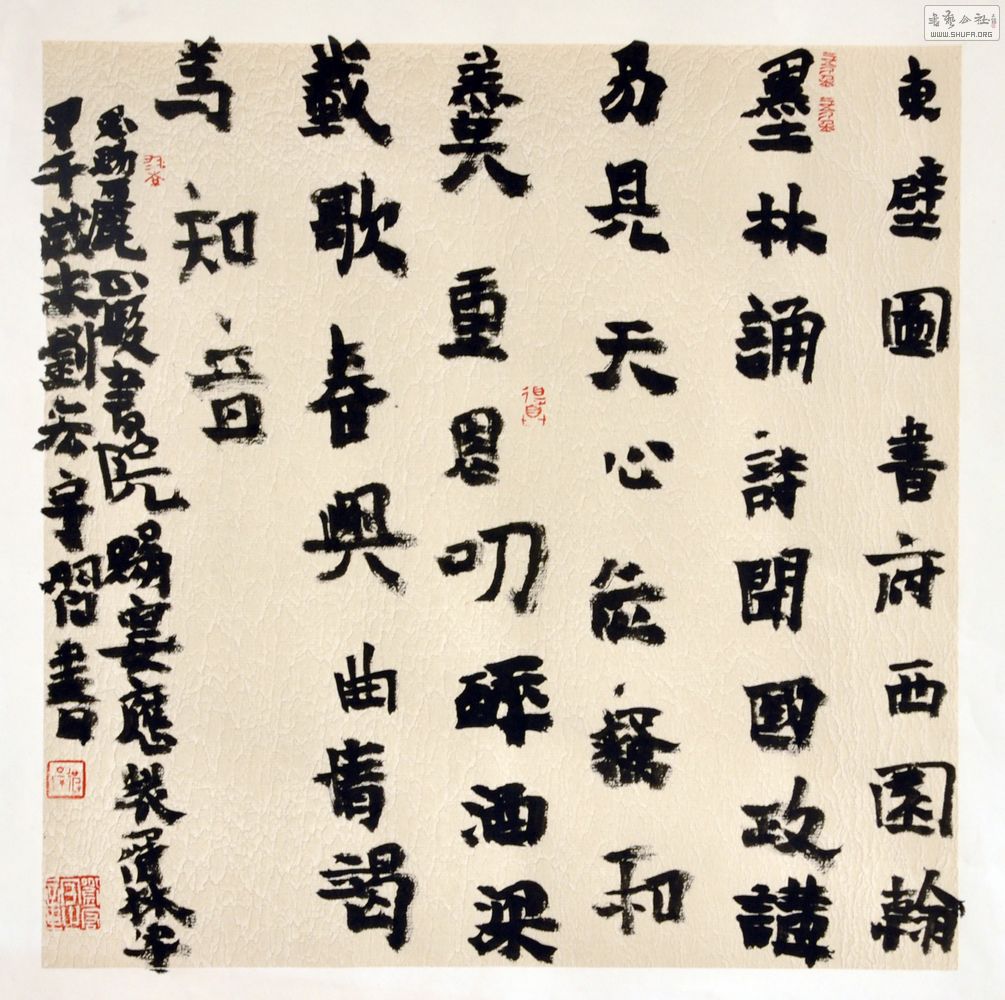 書藝公社
WWW.SHUFA.ORG
東壁圖書府西園翰
墨林誦詩聞國政講
易見天心位竊和
羹重恩叨醉酒梁
載歌春興曲情竭
為知音
恩勅麗正殿書院賜宴應製得林字
甲午歲末劉宏宇習書